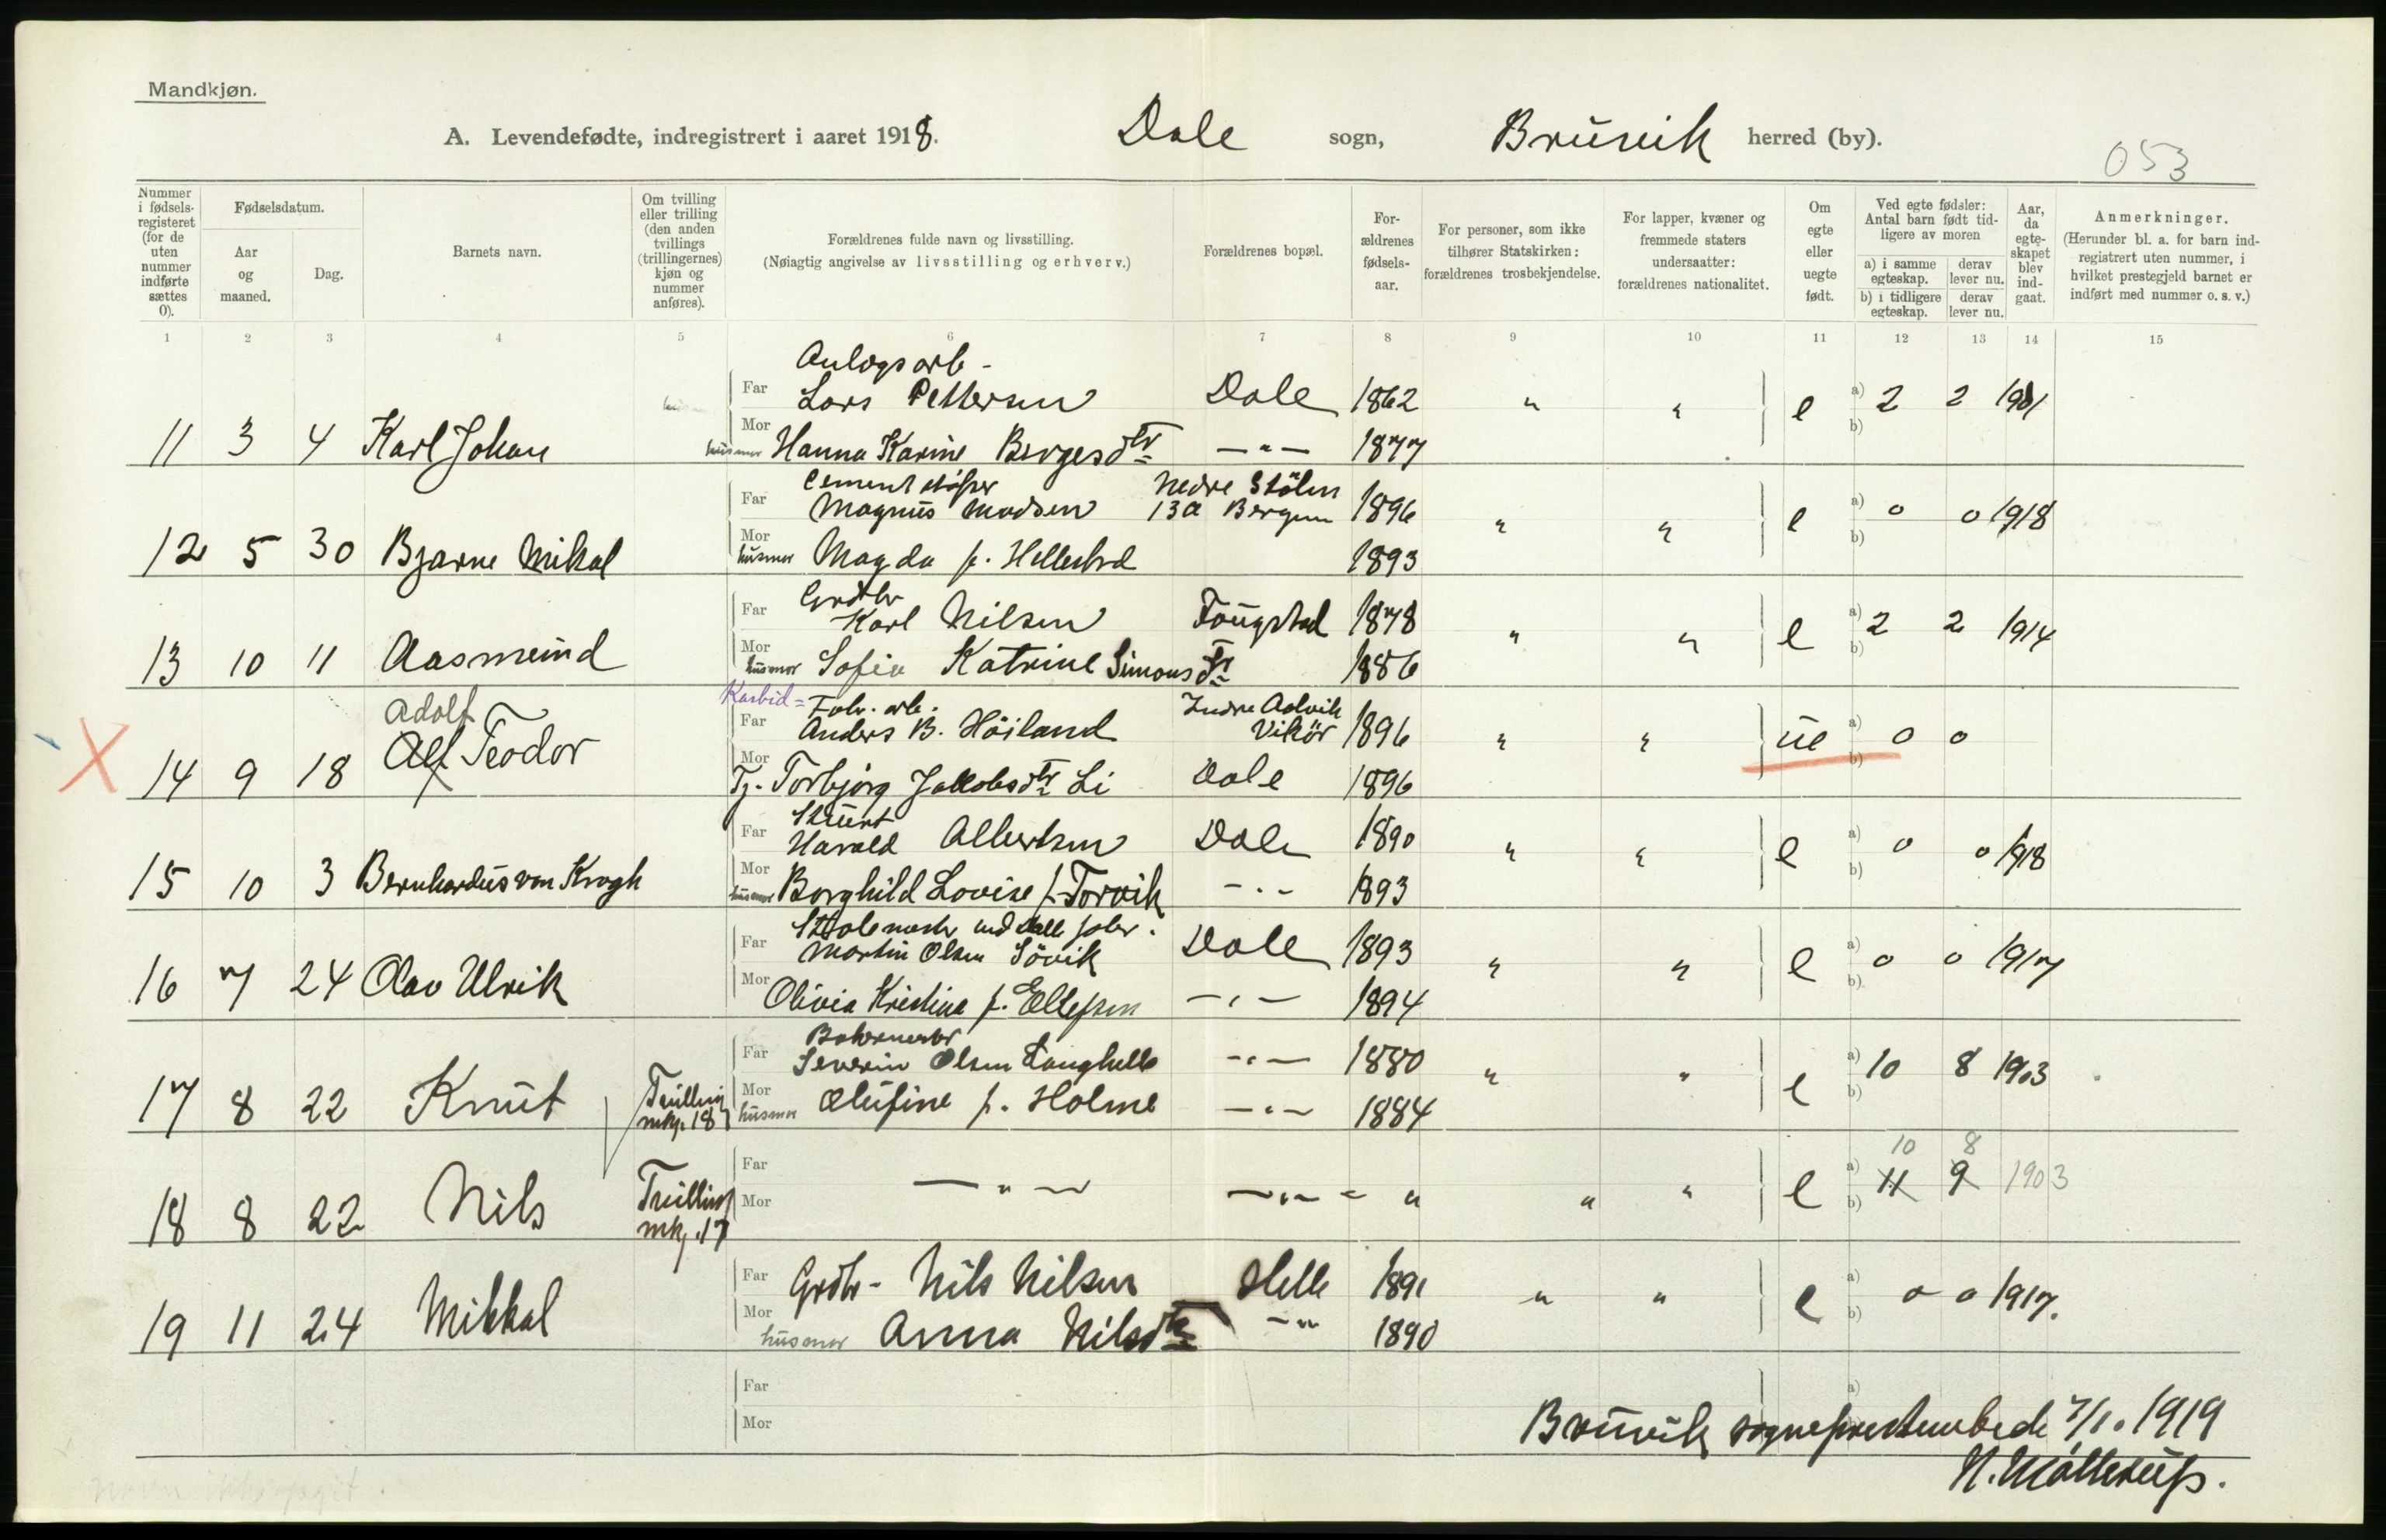 Mandkjøn.
A. Levendefødte, indregistrert i aaret 1918. Dale sogn, Bruvik herred (by).
053
Nummer i fødsels-registeret (for de uten nummer indførte sættes 0).
Fødselsdatum.
Aar og maaned.
Dag.
Barnets navn.
Om tvilling eller trilling (den anden tvillings (trillingernes) kjøn og nummer anføres).
Forældrenes fulde navn og livsstilling.
(Nøiagtig angivelse av livsstilling og erhverv.)
Forældrenes bopæl.
For-ældrenes fødsels-aar.
For personer, som ikke tilhører Statskirken: forældrenes trosbekjendelse.
For lapper, kvæner og fremmede staters undersaatter: forældrenes nationalitet.
Om egte eller uegte født.
Ved egte fødsler: Antal barn født tid-ligere av moren
a) i samme egteskap.
derav lever nu.
b) i tidligere egteskap.
derav lever nu.
Aar, da egte-skapet blev ind-gaat.
Anmerkninger.
(Herunder bl. a. for barn ind-registrert uten nummer, i hvilket prestegjeld barnet er indført med nummer o. s. v.)
1 2 3 4 5 6 7 8 9 10 11 12 13 14 15
Anlogsarb-
Far Lars Pettersen Dale 1862 " " e a) 2 2 1901
11 3 4 Karl Johan husmor Mor Hanna Karine Bergesdtr — " — 1877 b)
Cementstöper Nedre Stölen
Far Magnus Madsen 13a Bergen 1896 " " e a) 0 0 1918
12 5 30 Bjarne Mikal Mor husmor Magda f. Hellestod 1893 b)
Grdbr
Far Karl Nilsen Fougstad 1878 " " e a) 2 2 1914
13 10 11 Aasmund Mor husmor Sofia Katrine Simonsdtr 1886 b)
Karbid = Fabr. arb. Indre Aalvik
Adolf
Far Anders B. Höiland Vikör 1896 " " ue a) 0 0
14 9 18 Alf Teodor Mor Tj. Torbjörg Jakobsdtr Li Dale 1896 b)
Stuert
Far Harald Albertsen Dale 1890 " " e a) 0 0 1918
15 10 3 Bernhardus von Krogh Mor husmor Borghild Lovise f. Torvik - " - 1893 b)
Far Martin Olsen Sövik Dale 1893 " " e a) 0 0 1917
16 7 24 Olav Ulrik Mor Olivia Kristina f. Ellefsen — " — 1894 b)
Far Severin Olsen Langhelle - " — 1880 " " e a) 10 8 1903
17 8 22 Knut Tvilling mkj. 18 Mor husmor Olufine f. Holme — " — 1884 b)
10 8
18 8 22 Nils Tvilling mkj. 17 Far Mor — " — — " — " " " e a) 11 9 1903 b)
Far Grdbr- Nils Nilsen Helle 1891 " " e a) 0 0 1917.
19 11 24 Mikkal Mor husmor Anna Nilsdtr - " 1890 b)
Far a)
Mor b)
Bruvik sogneprestembede 7/1. 1919